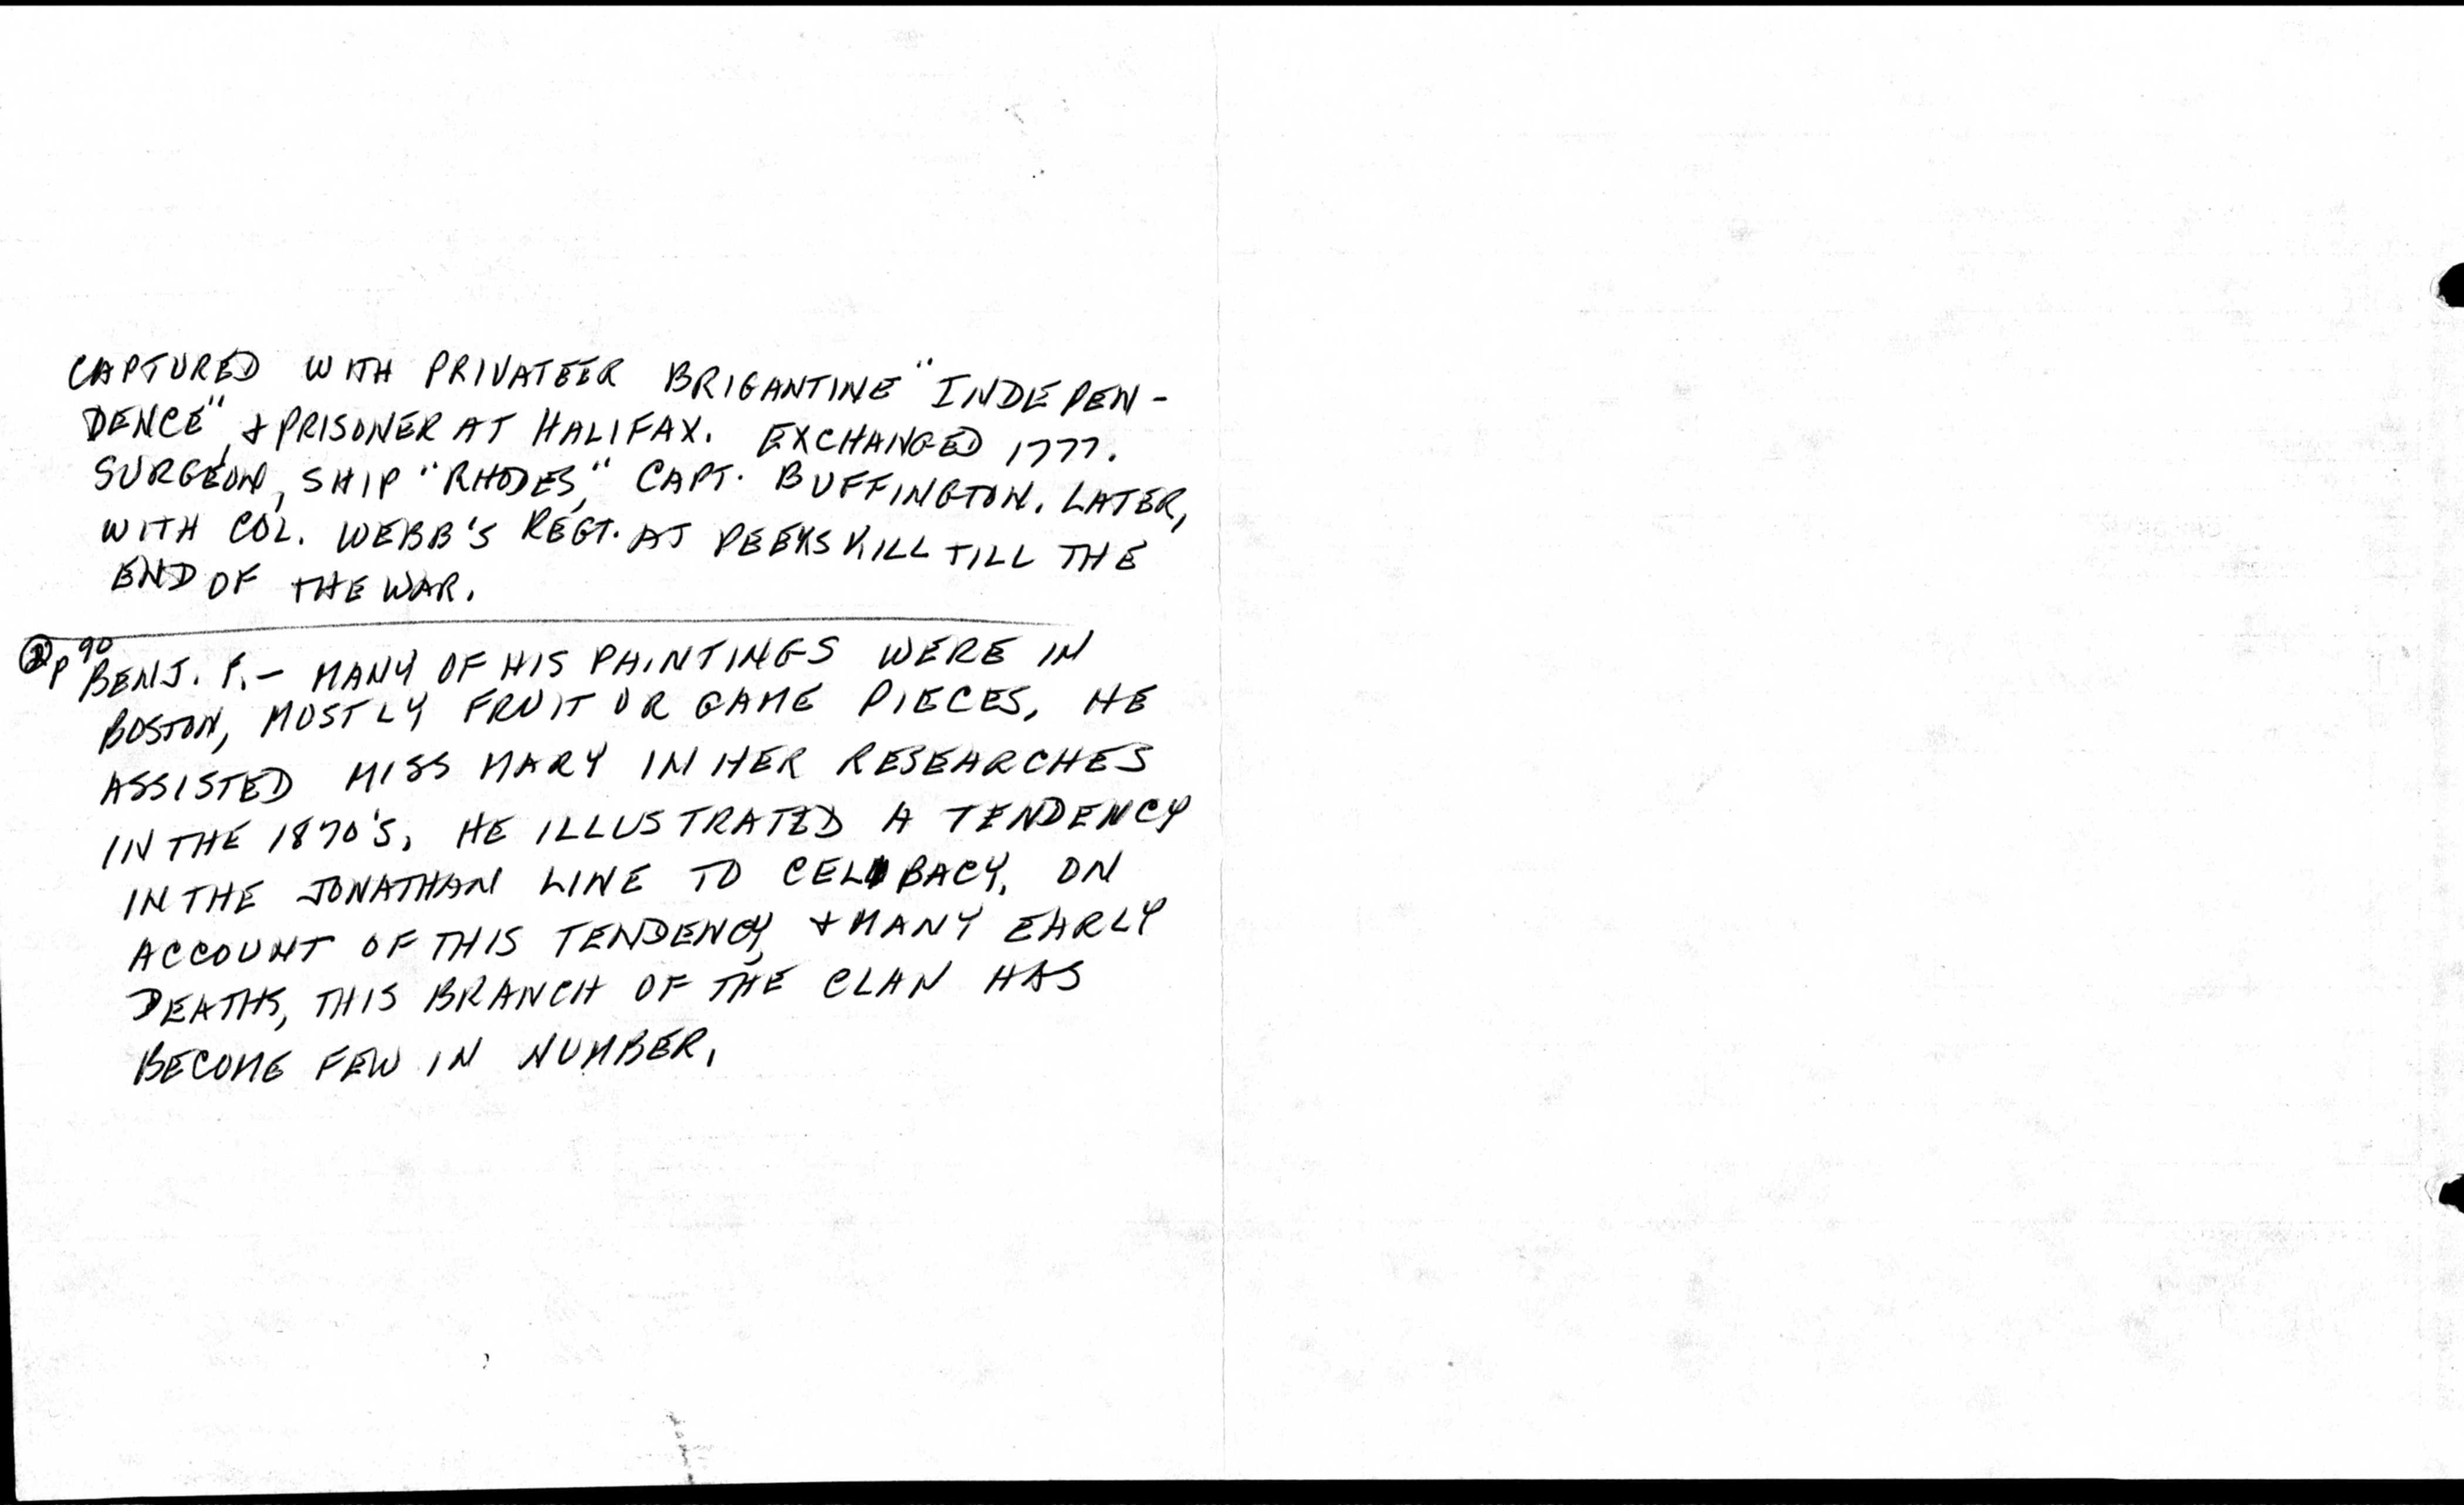 CAPTURED WITH PRIVATEER BRIGANTINE "INDEPEN-
DENCE", & PRISONER AT HALIFAX. EXCHANGED 1777.
SURGEON, SHIP "RHODES," CAPT. BUFFINGTON. LATER,
WITH COL. WEBB'S REGT. AT PEEKSKILL TILL THE
END OF THE WAR.
② P 90
BENJ. P. - MANY OF HIS PAINTINGS WERE IN
BOSTON, MOSTLY FRUIT OR GAME PIECES. HE
ASSISTED MISS MARY IN HER RESEARCHES
IN THE 1870'S. HE ILLUSTRATED A TENDENCY
IN THE JONATHAN LINE TO CELIBACY. ON
ACCOUNT OF THIS TENDENCY, & MANY EARLY
DEATHS, THIS BRANCH OF THE CLAN HAS
BECOME FEW IN NUMBER.